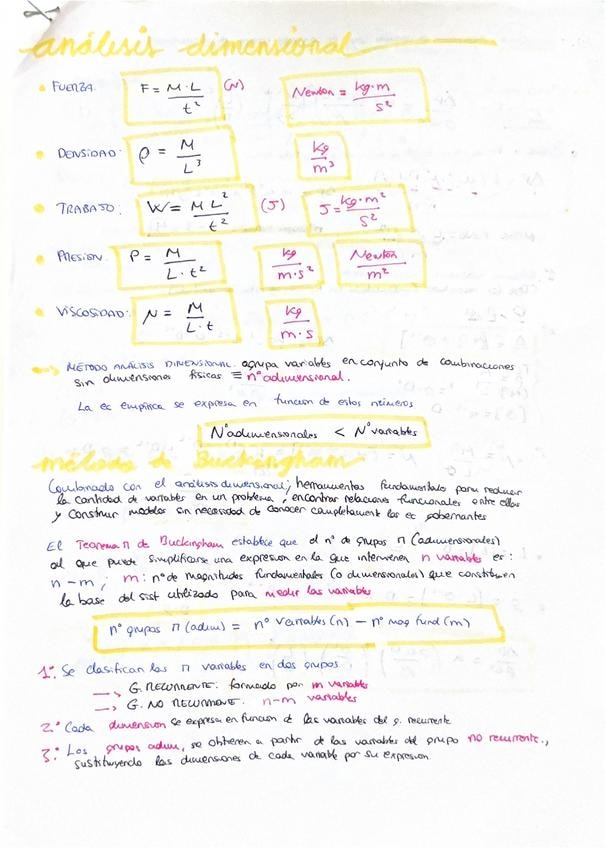 análisis dimensional
FUERZA: F = M·L / t² (N) Newton = kg·m / s²
DENSIDAD: ρ = M / L³ kg / m³
TRABAJO: W = M L² / t² (J) J = kg·m² / s²
PRESION: P = M / L·t² kg / m·s² Newton / m²
VISCOSIDAD: μ = M / L·t kg / m·s
MÉTODO ANÁLISIS DIMENSIONAL: agrupa variables en conjunto de combinaciones
sin dimensiones físicas ≡ nº adimensional.
La ec empírica se expresa en funcion de estos números
Nº adimensionales < Nº variables
método de Buckingham
Combinado con el análisis dimensional; herramientas fundamentales para reducir
la cantidad de variables en un problema, encontrar relaciones funcionales entre ellas
y construir modelos sin necesidad de conocer completamente las ec gobernantes
El Teorema π de Buckingham establece que el nº de grupos π (adimensionales)
al que puede simplificarse una expresion en la que intervienen n variables es:
n - m; m: nº de magnitudes fundamentales (o dimensionales) que constituyen
la base del sist utilizado para medir las variables
nº grupos π (adim) = nº variables (n) - nº mag fund (m)
1º Se clasifican las n variables en dos grupos:
→ G. RECURRENTE: formado por m variables
→ G. NO RECURRENTE: n-m variables
2º Cada dimension se expresa en funcion d las variables del g. recurrente
3º Los grupos adim, se obtienen a partir de las variables del grupo no recurrente.,
sustituyendo las dimensiones de cada variable por su expresion.